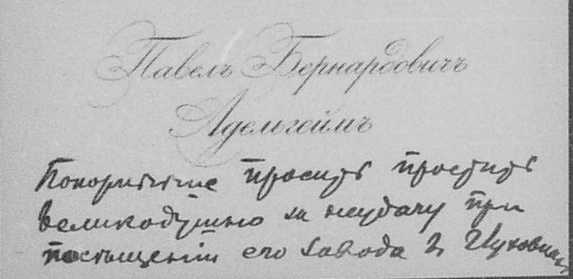 Павелъ Бернардовичъ
Адельгеймъ
Покорнѣйше проситъ простить
великодушно за неудачу при
посѣщенiи его завода въ